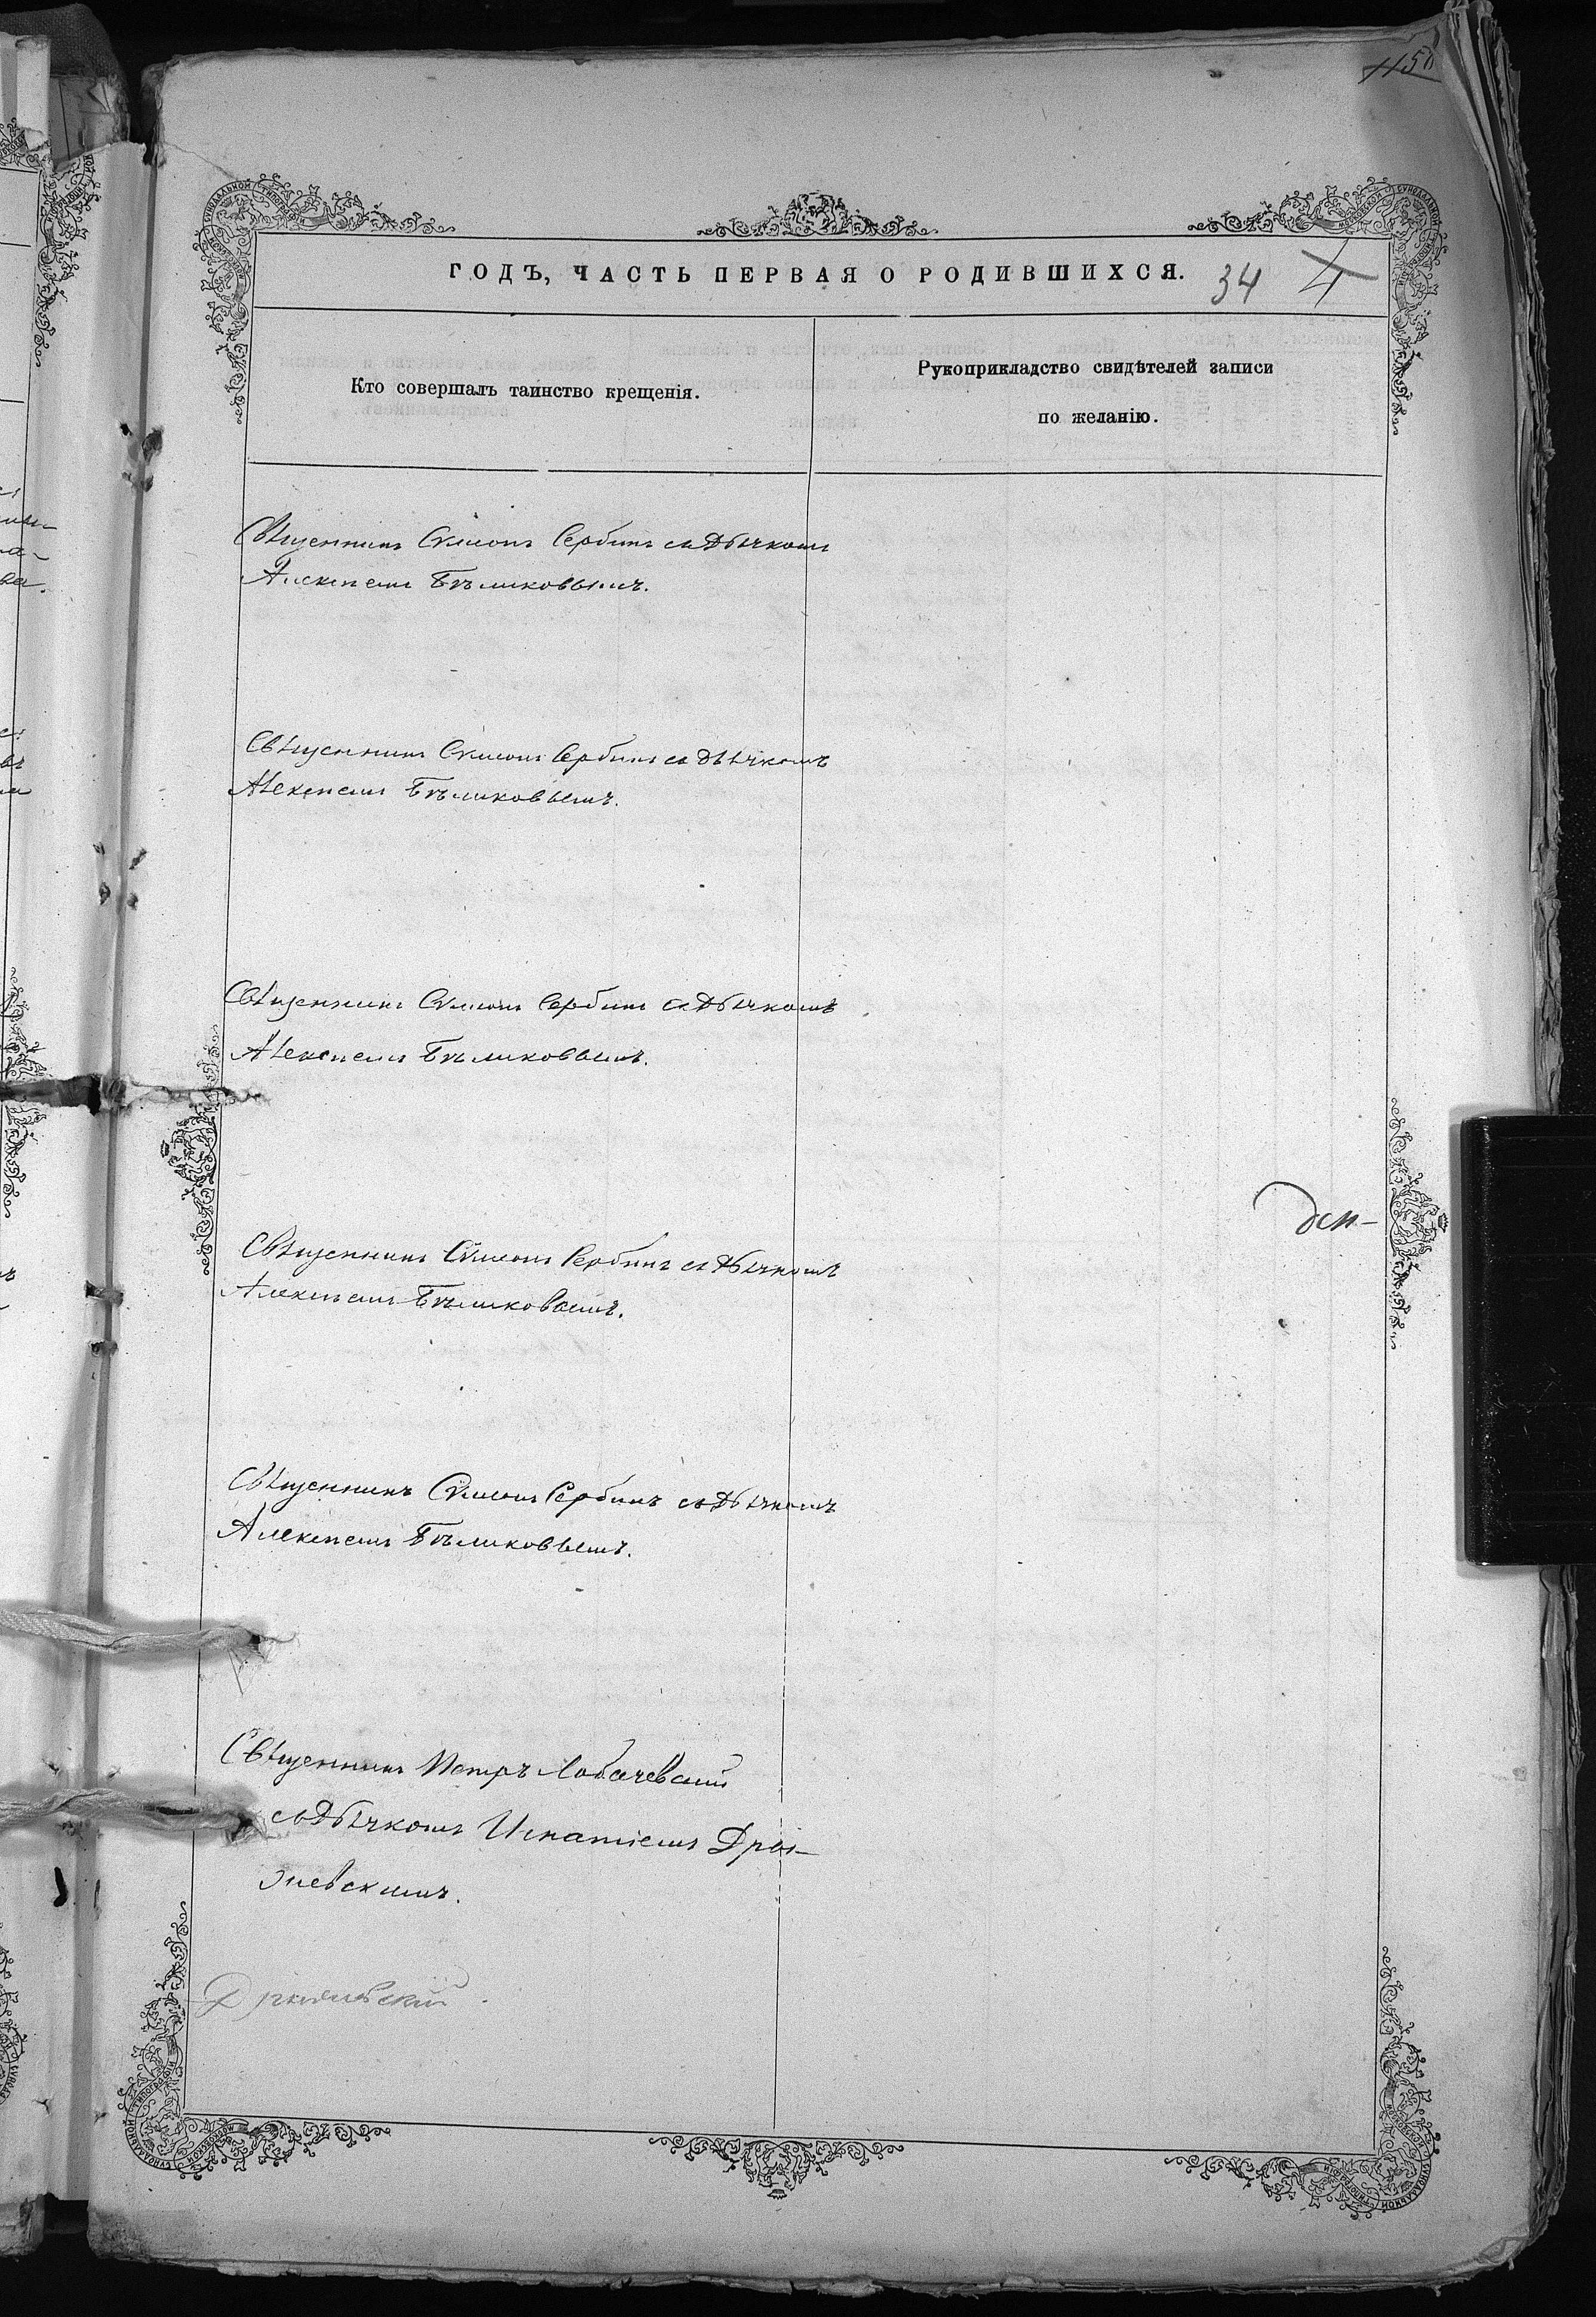 1158
ГОДЪ, ЧАСТЬ ПЕРВАЯ О РОДИВШИХСЯ. 34 4
Кто совершалъ таинство крещенія.
Рукоприкладство свидѣтелей записи
по желанію.
Священникъ Симеонъ Сербинъ съ дьячкомъ
Алексѣемъ Бѣликовымъ.
Священникъ Симеонъ Сербинъ съ дьячкомъ
Алексѣемъ Бѣликовымъ.
Священникъ Симеонъ Сербинъ съ дьячкомъ
Алексѣемъ Бѣликовымъ.
Священникъ Симеонъ Сербинъ съ дьячкомъ
Алексѣемъ Бѣликовымъ.
Священникъ Симеонъ Сербинъ съ дьячкомъ
Алексѣемъ Бѣликовымъ.
Священникъ Петръ Лобачевскій
съ дьячкомъ Игнатіемъ